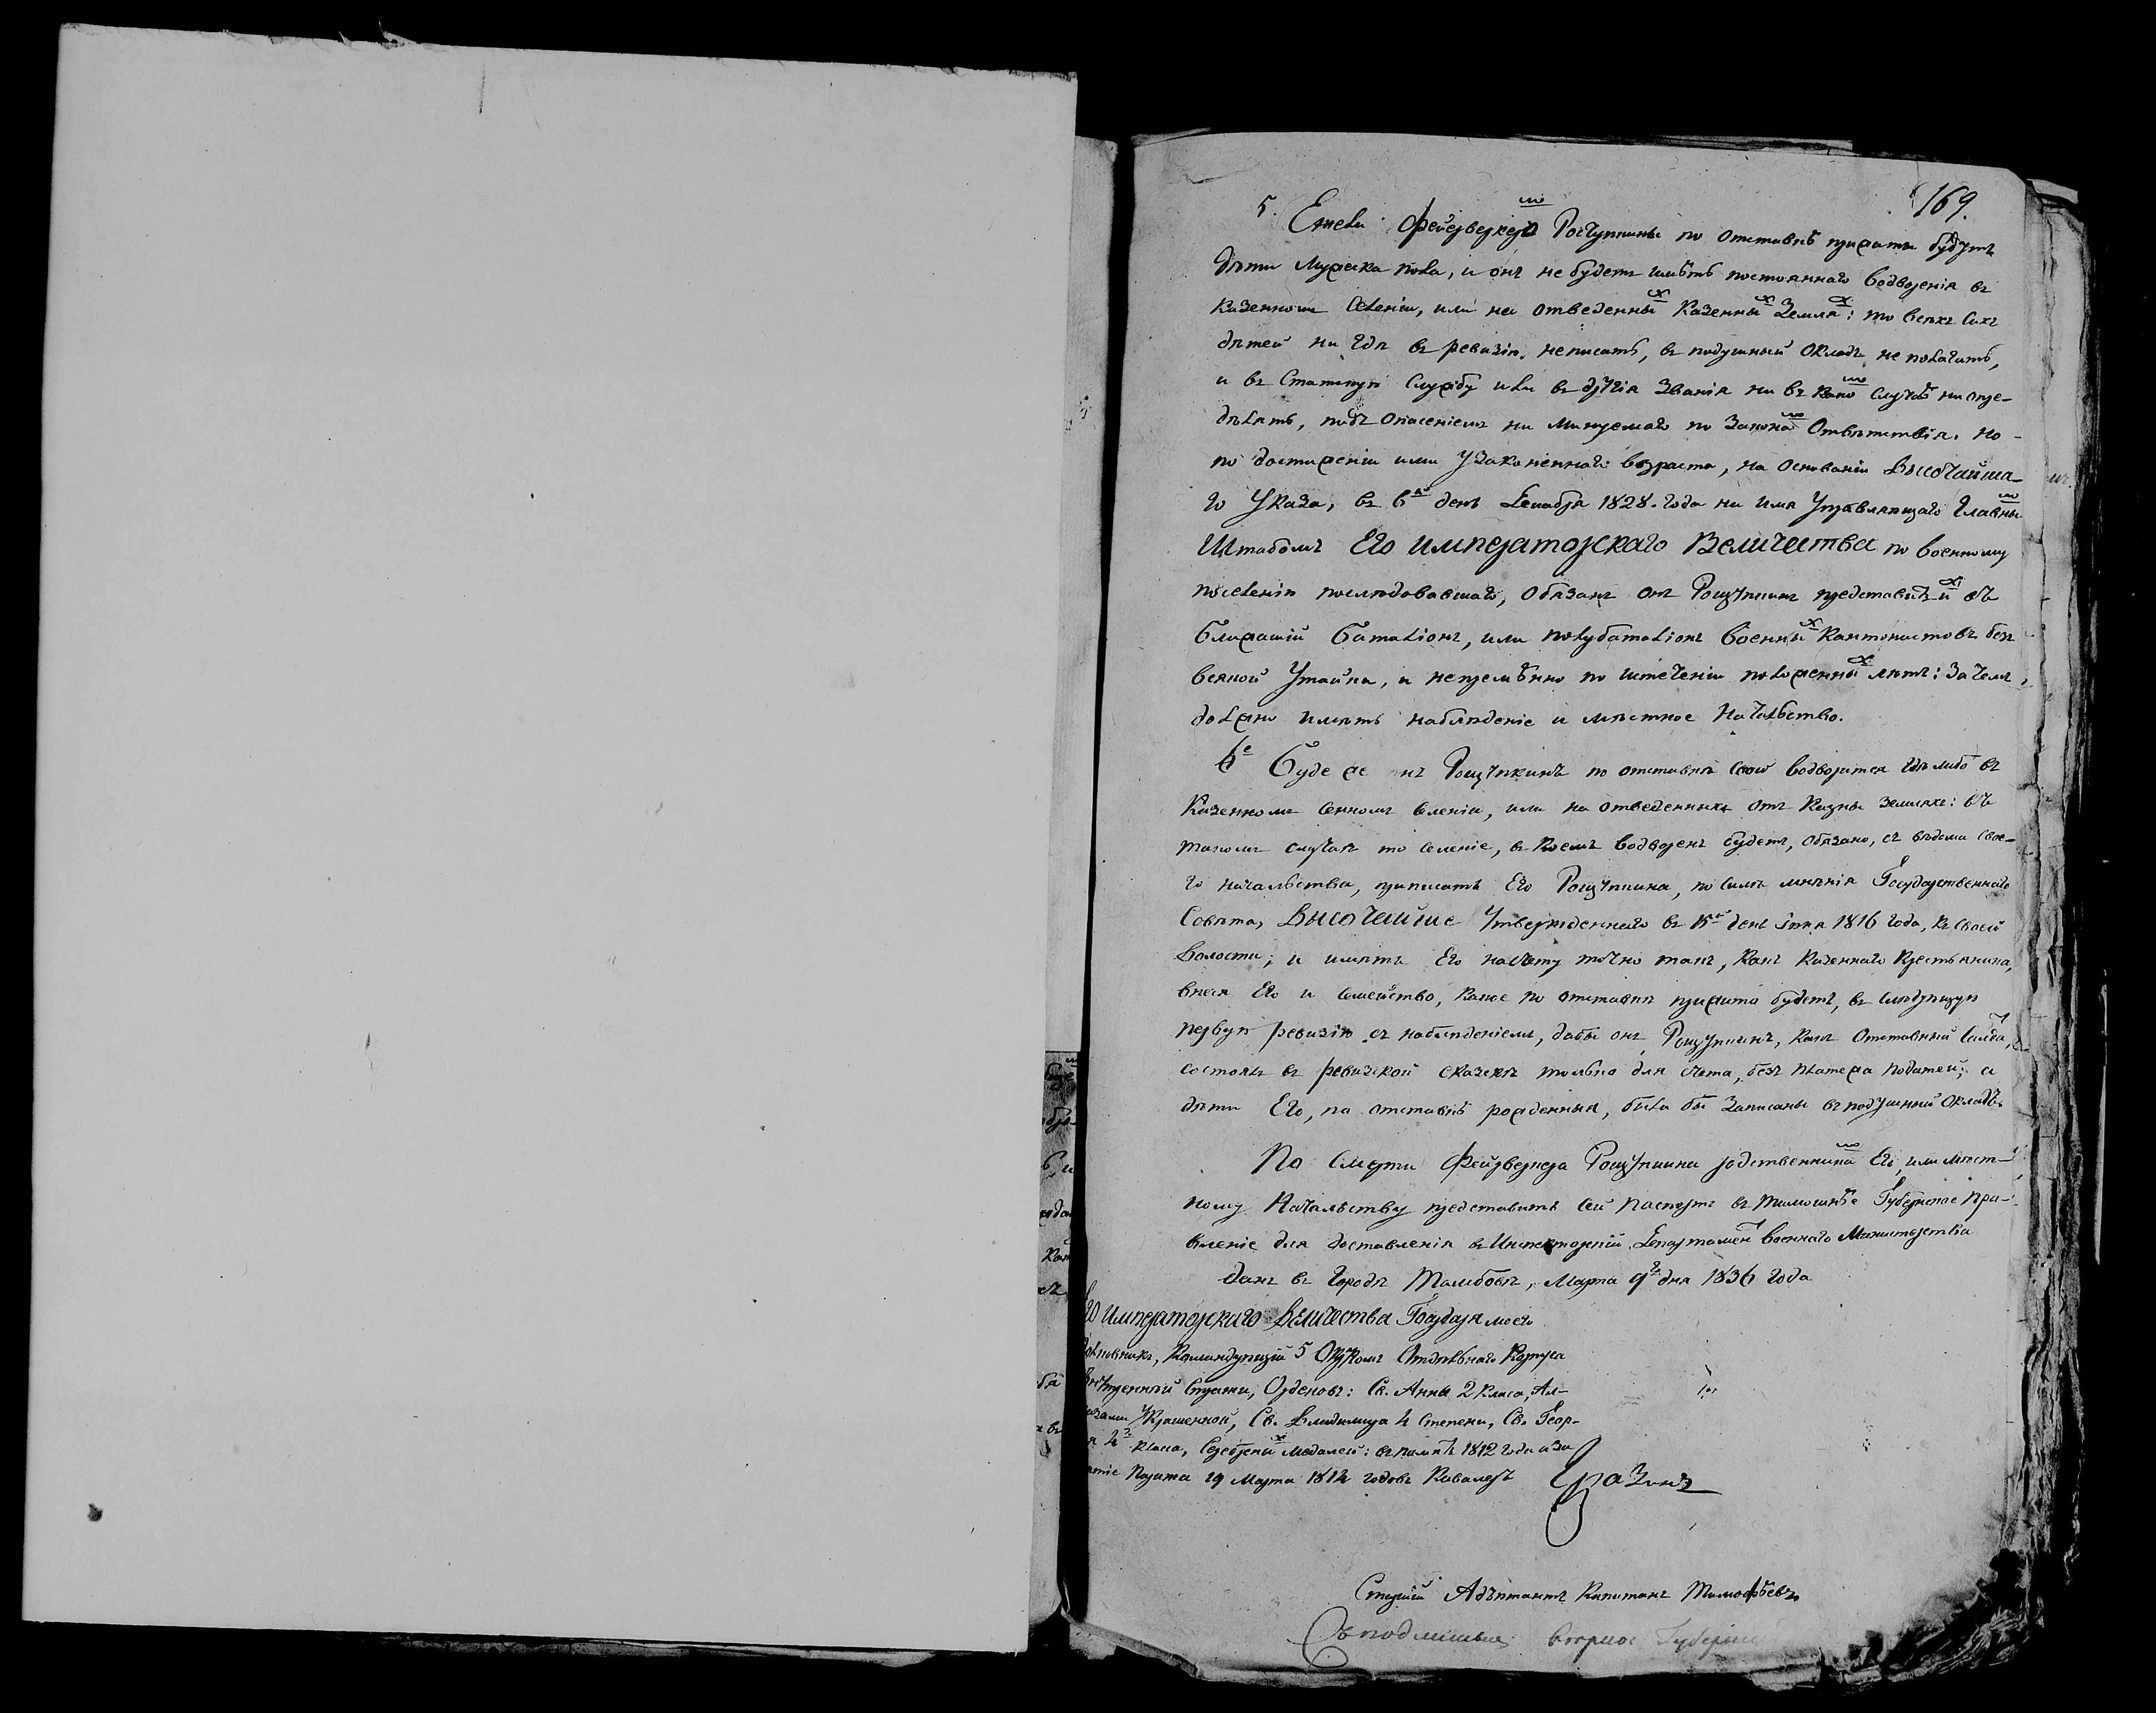 169.
5. Ежели Фейервейкеро Рощупкинымъ по отставкѣ прижиты будутъ
дѣти мужеска пола, и онъ не будетъ имѣть постояннаго водворенія въ
казенномъ селеніи, или на отведенныхъ казенныхъ земляхъ: то всѣхъ сихъ
дѣтей ни гдѣ въ ревизію неписать, въ подушный окладъ не полагать,
и въ статскую службу или въ другія званія ни въ какомъ случаѣ не опре-
дѣлять, подъ опасеніемъ не минуемаго по законамъ отвѣтствія. но
по достиженіи ими узаконеннаго возраста, на основаніи Высочайша-
го указа, въ 6й день Декабря 1828. года на имя Управляющаго Главнымъ
Штабомъ Его Императорскаго Величества по военному
поселенію послѣдовавшаго, обязанъ онъ Рощупкинъ представить ихъ въ
ближайшій баталіонъ, или полубаталіонъ военныхъ кантонистовъ безъ
всякой утайки, и непремѣнно по истеченіи положенныхъ лѣтъ: за чемъ
должно имѣть наблюденіе и мѣстное начальство.
6е Буде же онъ Рощупкинъ по отставкѣ своей водворится гдѣ либо въ
казенномъ селеніи, или на отведенныхъ отъ казны земляхъ: въ
такомъ случаѣ то селеніе, въ коемъ водворенъ будетъ, обязано, съ вѣдома свое-
го начальства, приписать Его Рощупкина, по силѣ мнѣнія Государственнаго
Совѣта, Высочайше утвержденнаго въ день Іюня 1816 года, къ своей
волости; и имѣть Его на счету точно такъ, какъ казеннаго крестьянина,
внеся Его и семейство, какое по отставкѣ прижито будетъ, въ слѣдующую
первую ревизію съ наблюденіемъ, дабы онъ, Рощупкинъ, какъ отставный солдатъ,
состоялъ въ ревизской сказкѣ только для счета, безъ платежа податей; а
дѣти Его, по отставкѣ рожденныя, были бы записаны въ подушный окладъ.
По смерти Фейервейкера Рощупкина родственникамъ Его, или мѣст-
ному начальству представить сей паспортъ въ Тамбовское Губернское Пра-
вленіе для доставленія въ Инспекторскій Департаментъ Военнаго Министерства
Данъ въ городѣ Тамбовѣ, Марта 9го дня 1836 года
Его Императорскаго Величества Государя моего
Полковникъ, Командующій 5 Округомъ Отдѣльнаго Корпуса
Внутренней Стражи, Орденовъ: Св. Анны 2 класа, Ал-
мазами украшенной, Св. Владимира 4 степени, Св. Геор-
4го класа, серебреныхъ медалей: въ память 1812 года и за
взятіе Парижа 19 Марта 1814 годовъ Кавалеръ
Старшій Адъютантъ Капитанъ Тимофѣевъ
Съ подлиннымъ вѣрно: